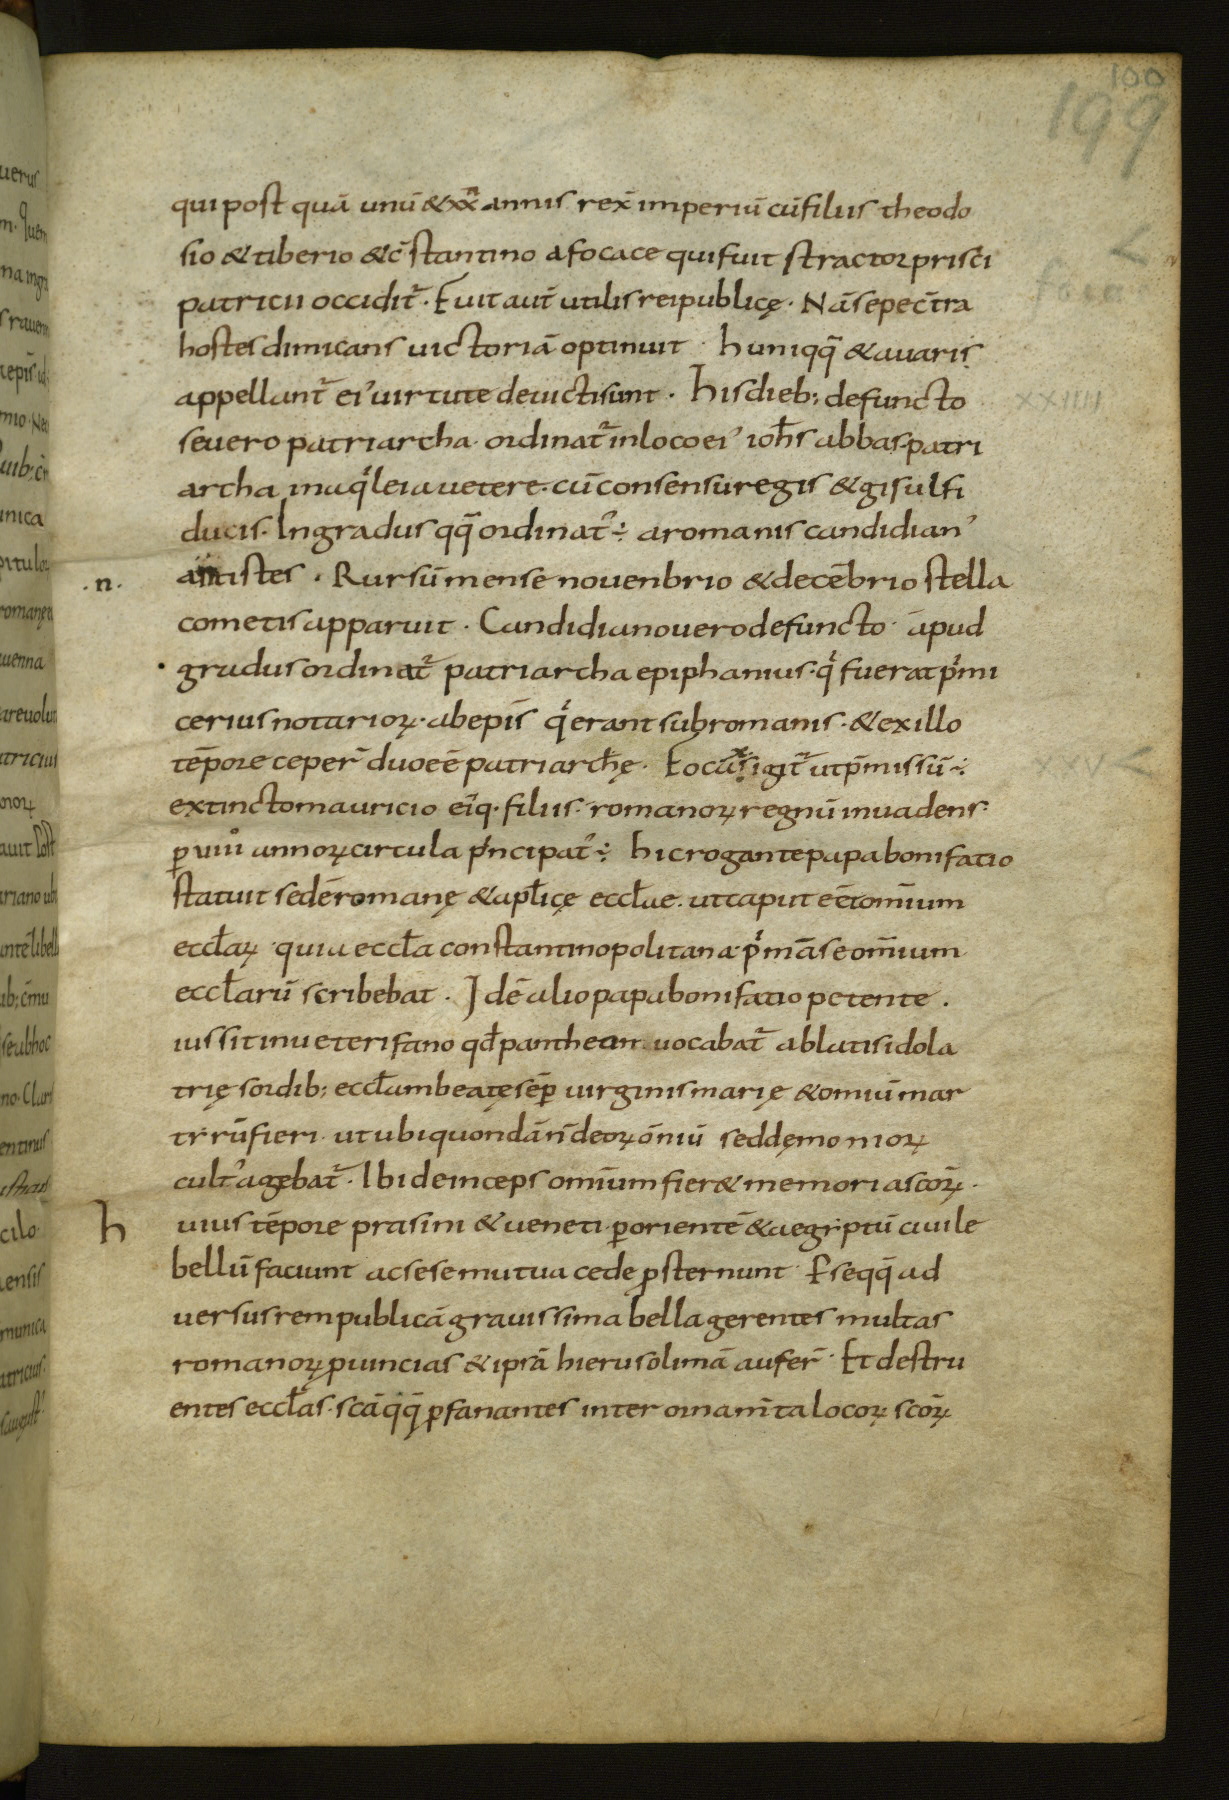 100
199
qui post quā unū & xx annis rex̄ imperiū cū filiis theodo
sio & tiberio & c̄stantino a focace qui fuit stractor prisci
patricii occidit᷑. Fuit aut̄ utilis rei publicę. Nā sepe c̄tra
hostes dimicans uictoriā optinuit. huniqq̄ & auaris
appellant᷑ ei᾽ uirtute deuicti sunt. his dieb; defuncto
seuero patriarcha. ordinat᷑ in loco ei᾽ ioh̄s abbas patri
archa in aqͥleia uetere. cū consensu regis & gisulfi
ducis. In gradus qq̄ ordinat᾽ ÷ a romanis candidian᾽
antistes. Rursū mense nouenbrio & decēbrio stella
.n.
cometis apparuit. Candidiano uero defuncto apud
gradus ordinat᷑ patriarcha epiphanius. qͥ fuerat pͥmi
cerius notarioꝝ. ab ep̄is qͥ erant sub romanis. & ex illo
tēpore ceper̄ duo eē patriarchę. Focas igit᷑ ut p̄missū ÷
xxv
extincto mauricio eiꝰq. filiis. romanoꝝ regnū inuadens.
ꝑ uiii annoꝝ circula pͥncipat᾽ ÷ hic rogante papa bonifatio
statuit sedē romanę & apl̄icę eccl̄ae. ut caput eēt omīum
eccl̄aꝝ. quia eccl̄a constantinopolitana pͥmā se omīum
eccl̄arū scribebat. Idē alio papa bonifatio petente.
iussit in ueteri fano qd̄ pantheon uocabat᷑ ablatis idola
trię sordib; eccl̄am beatę sēp uirginis marię & omiū mar
trrū fieri. ut ubi quondā n̄ deoꝝ om̄iū sed dęmonioꝝ
cult᾽ agebat᷑. Ibi deinceps omīum fier& memoria sc̄oꝝ.
h uius tēpore prasini & ueneti ꝑ orientē & aegiptū ciuile
bellū faciunt ac sese mutua cede ꝓsternunt. Pseqq̄ ad
uersus rem publicā grauissima bella gerentes multas
romanoꝝ ꝓuincias & ipsā hierusolimā aufer̄. Et destru
entes eccl̄as. sc̄a qͥqͣ ꝓfanantes inter ornam̄ta locoꝝ sc̄oꝝ